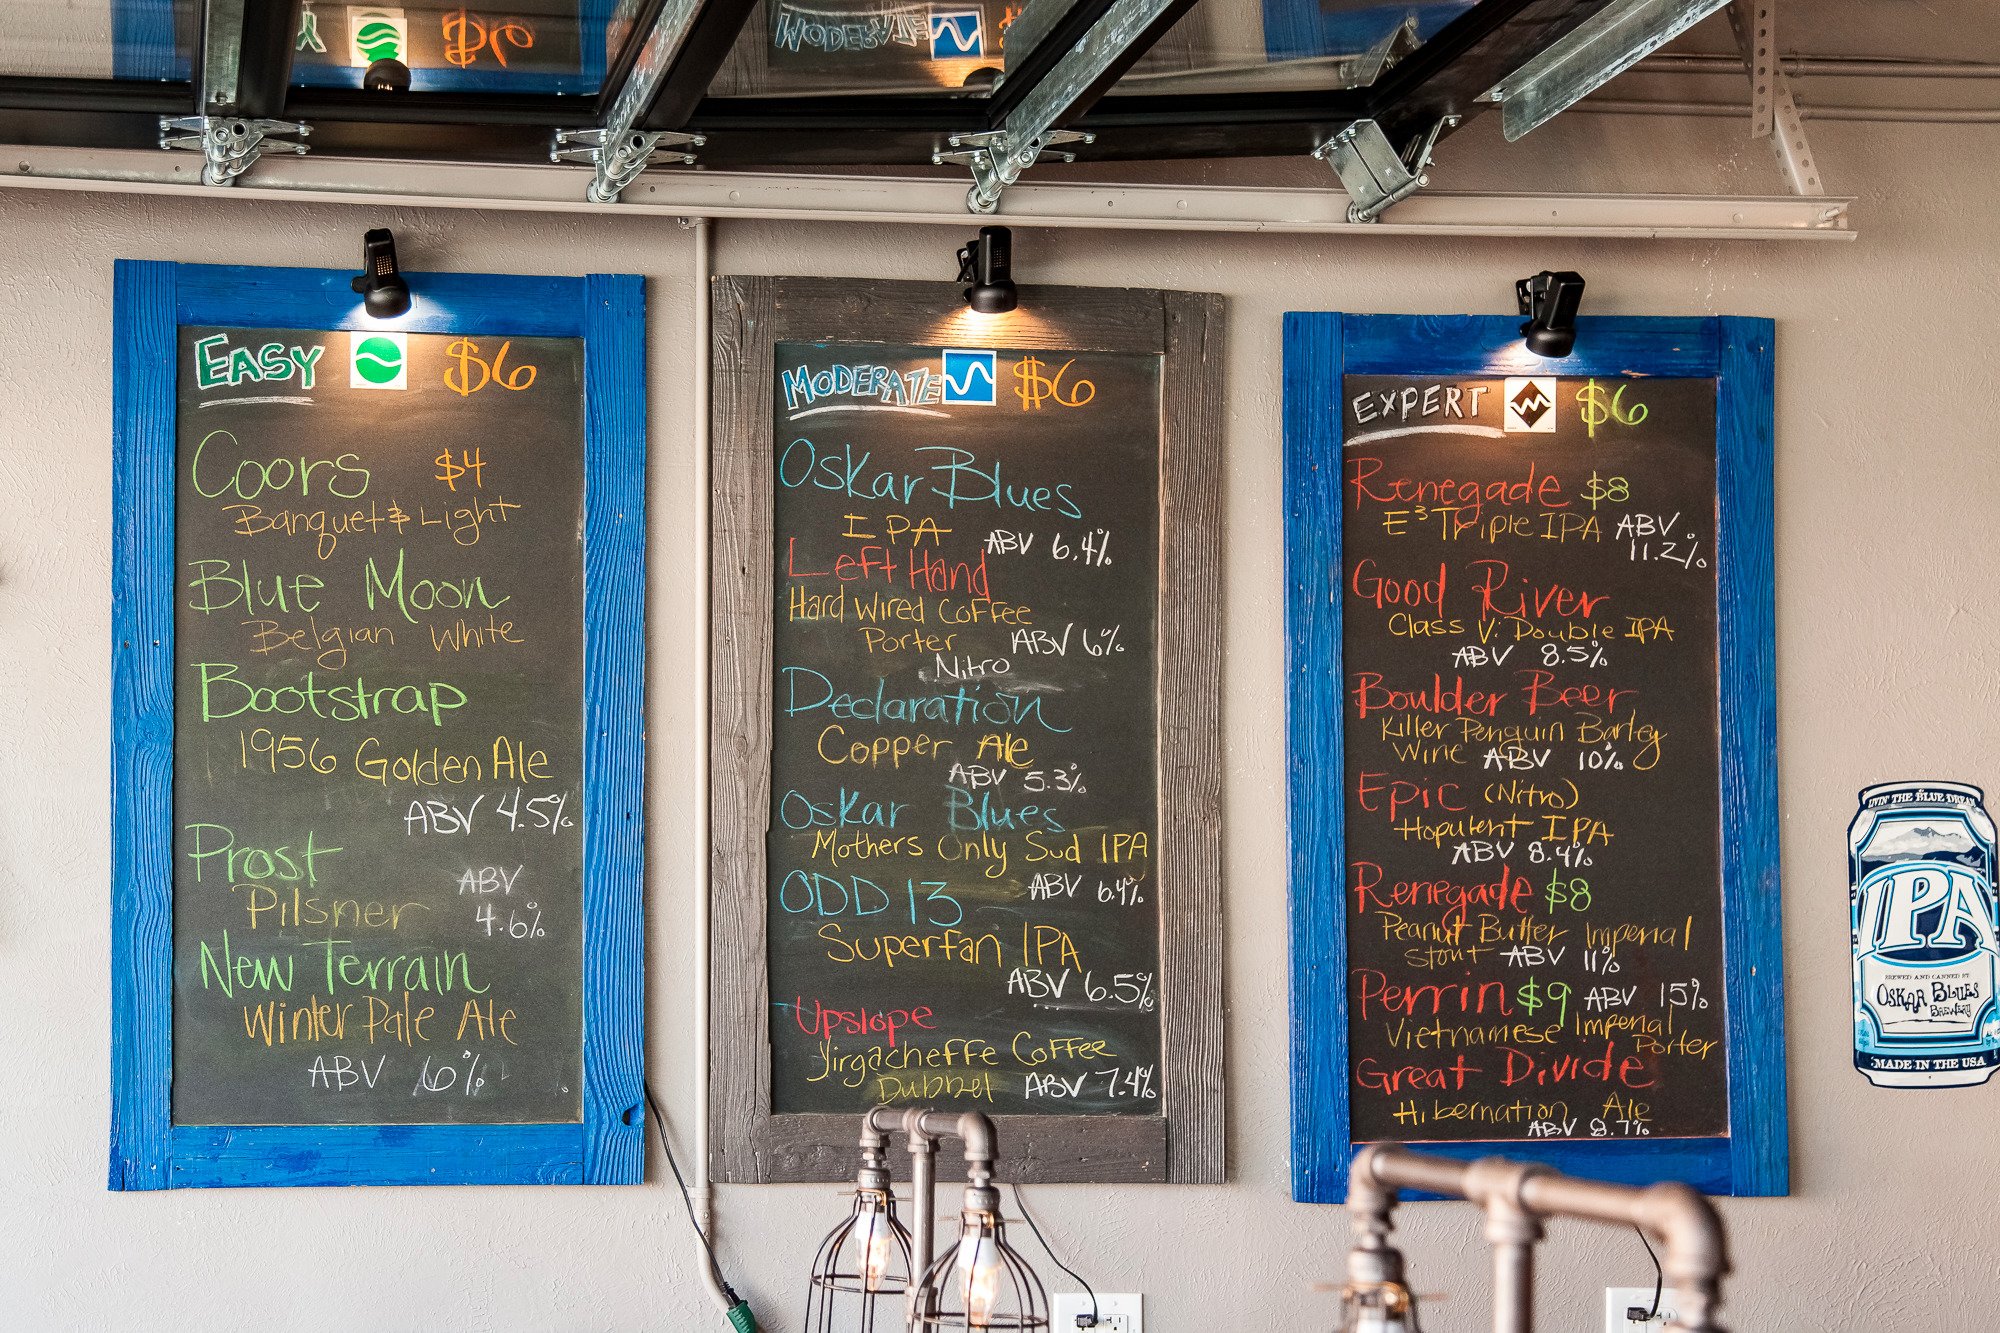 EASY $6
Coors $4
Banquet & Light
Blue Moon
Belgian White
Bootstrap
1956 Golden Ale
ABV 4.5%
Prost
Pilsner ABV 4.6%
New Terrain
Winter Pale Ale
ABV 6%
MODERATE $6
Oskar Blues
IPA ABV 6.4%
Left Hand
Hard Wired Coffee
Porter ABV 6%
Nitro
Declaration
Copper Ale
ABV 5.3%
Oskar Blues
Mothers Only Sud IPA
ABV 6.4%
ODD 13
Superfan IPA
ABV 6.5%
Upslope
Yirgacheffe Coffee
Dubbel ABV 7.4%
EXPERT $6
Renegade $8
E³ Triple IPA ABV
11.2%
Good River
Class V: Double IPA
ABV 8.5%
Boulder Beer
Killer Penguin Barley
Wine ABV 10%
Epic (Nitro)
Hopulent IPA
ABV 8.4%
Renegade $8
Peanut Butter Imperial
Stout ABV 11%
Perrin $9 ABV 15%
Vietnamese Imperial
Porter
Great Divide
Hibernation Ale
ABV 8.7%
LIVIN' THE BLUE DREAM
IPA
BREWED AND CANNED BY
OSKAR BLUES
BREWERY
MADE IN THE USA